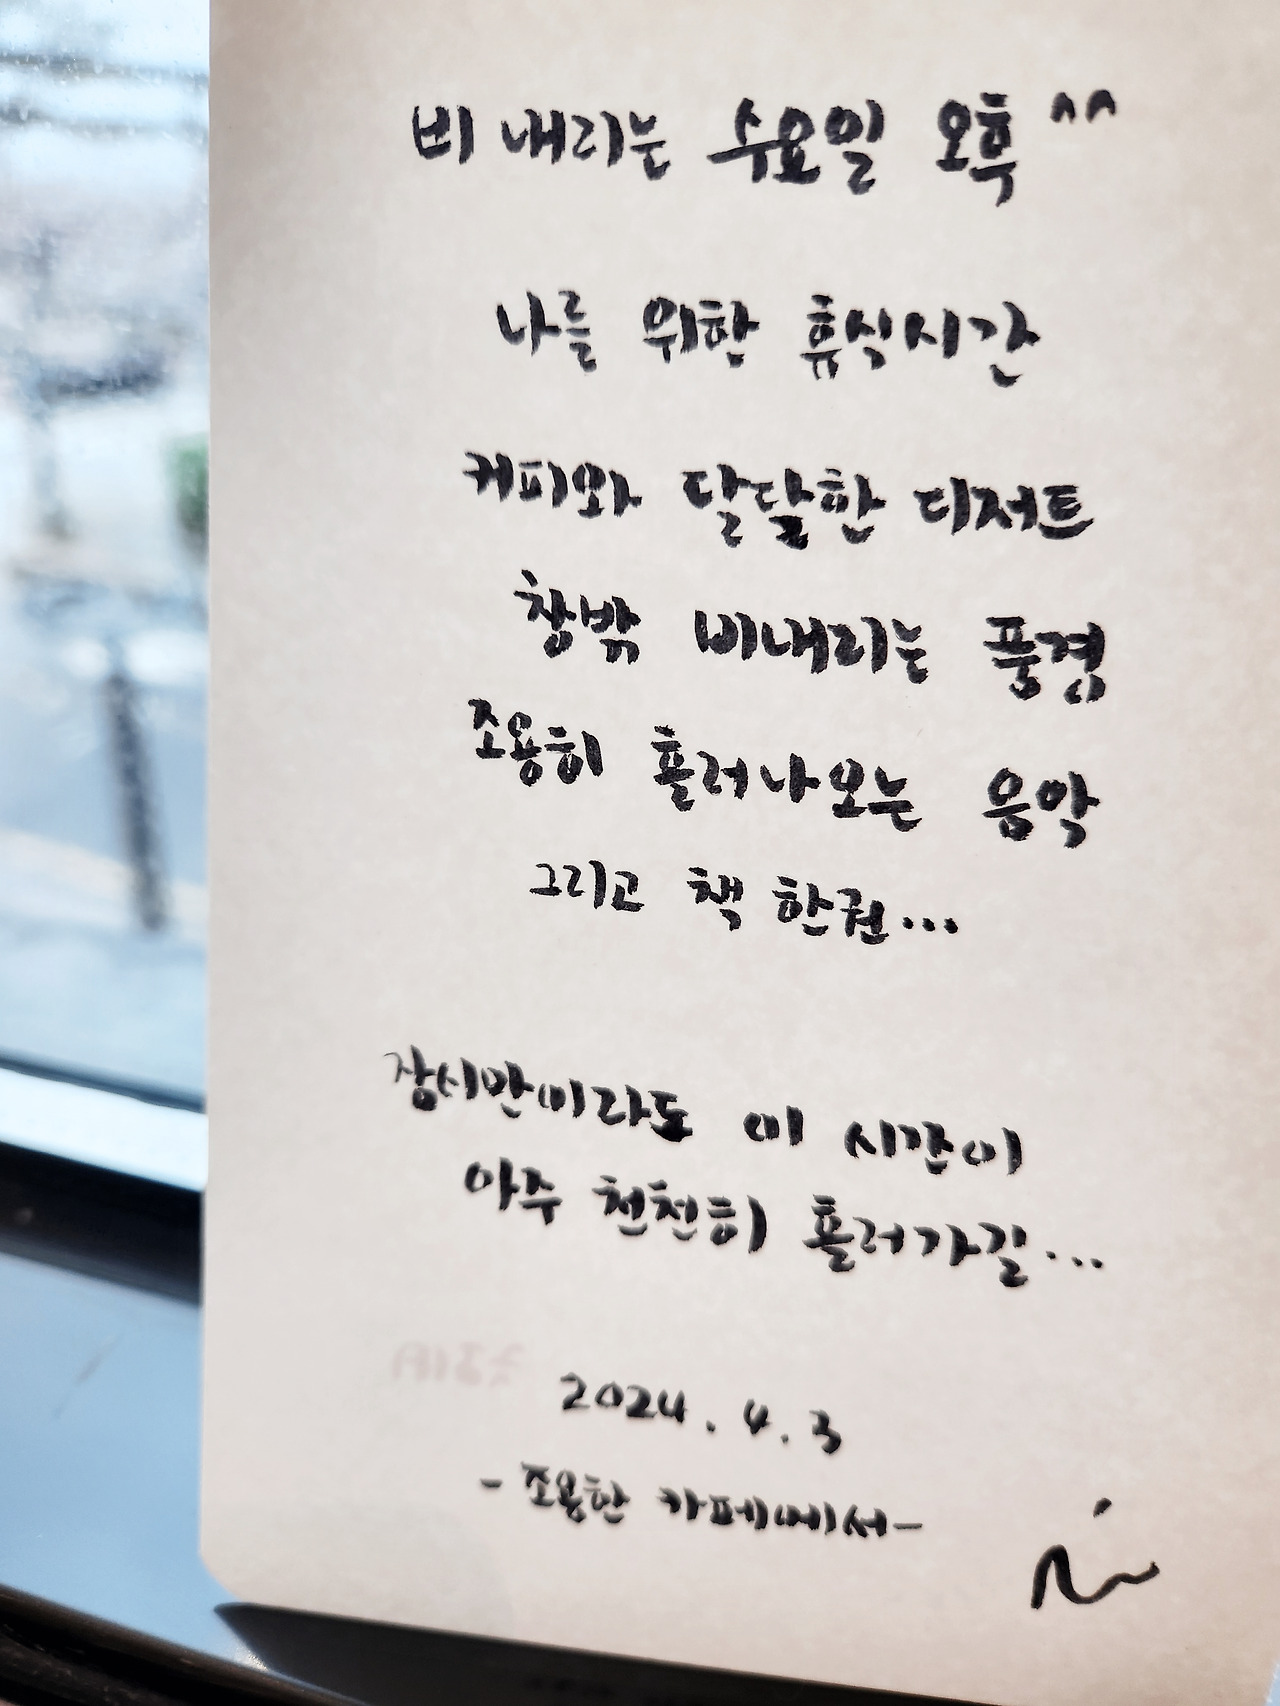 비 내리는 수요일 오후 ^^
나를 위한 휴식시간
커피와 달달한 디저트
창밖 비내리는 풍경
조용히 흘러나오는 음악
그리고 책 한권...
잠시만이라도 이 시간이
아주 천천히 흘러가길...
2024. 4. 3
- 조용한 카페에서 -